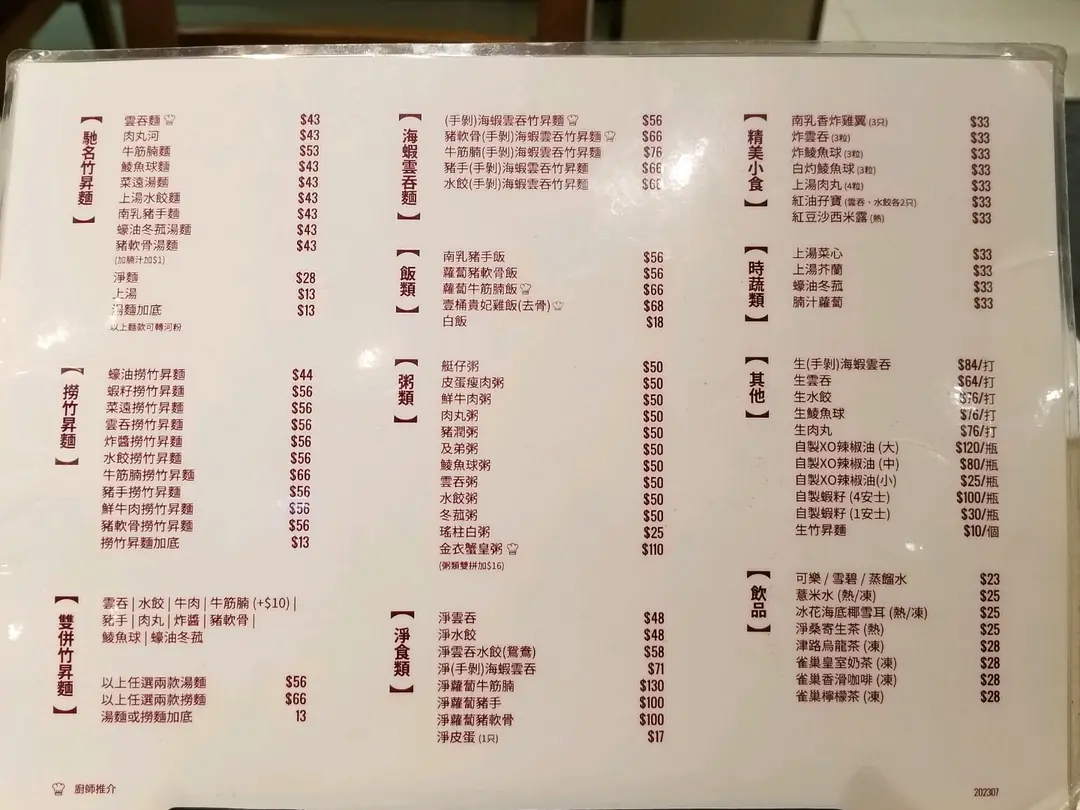 馳名竹昇麵
雲吞麵 $43
肉丸河 $43
牛筋腩麵 $53
鯪魚球麵 $43
菜遠湯麵 $43
上湯水餃麵 $43
南乳豬手麵 $43
蠔油冬菰湯麵 $43
豬軟骨湯麵 $43
(加腩汁加$1)
淨麵 $28
上湯 $13
湯麵加底 $13
以上麵款可轉河粉
撈竹昇麵
蠔油撈竹昇麵 $44
蝦籽撈竹昇麵 $56
菜遠撈竹昇麵 $56
雲吞撈竹昇麵 $56
炸醬撈竹昇麵 $56
水餃撈竹昇麵 $56
牛筋腩撈竹昇麵 $66
豬手撈竹昇麵 $56
鮮牛肉撈竹昇麵 $56
豬軟骨撈竹昇麵 $56
撈竹昇麵加底 $13
雙併竹昇麵
雲吞 | 水餃 | 牛肉 | 牛筋腩 (+$10) |
豬手 | 肉丸 | 炸醬 | 豬軟骨 |
鯪魚球 | 蠔油冬菰
以上任選兩款湯麵 $56
以上任選兩款撈麵 $66
湯麵或撈麵加底 13
廚師推介
海蝦雲吞麵
(手剝)海蝦雲吞竹昇麵 $56
豬軟骨(手剝)海蝦雲吞竹昇麵 $66
牛筋腩(手剝)海蝦雲吞竹昇麵 $76
豬手(手剝)海蝦雲吞竹昇麵 $66
水餃(手剝)海蝦雲吞竹昇麵
飯類
南乳豬手飯 $56
蘿蔔豬軟骨飯 $56
蘿蔔牛筋腩飯 $66
壹桶貴妃雞飯(去骨) $68
白飯 $18
粥類
艇仔粥 $50
皮蛋瘦肉粥 $50
鮮牛肉粥 $50
肉丸粥 $50
豬潤粥 $50
及弟粥 $50
鯪魚球粥 $50
雲吞粥 $50
水餃粥 $50
冬菰粥 $50
瑤柱白粥 $25
金衣蟹皇粥 $110
(粥類雙拼加$16)
淨食類
淨雲吞 $48
淨水餃 $48
淨雲吞水餃(鴛鴦) $58
淨(手剝)海蝦雲吞 $71
淨蘿蔔牛筋腩 $130
淨蘿蔔豬手 $100
淨蘿蔔豬軟骨 $100
淨皮蛋 (1只) $17
精美小食
南乳香炸雞翼 (3只) $33
炸雲吞 (3粒) $33
炸鯪魚球 (3粒) $33
白灼鯪魚球 (3粒) $33
上湯肉丸 (4粒) $33
紅油孖寶 (雲吞、水餃各2只) $33
紅豆沙西米露 (熱) $33
時蔬類
上湯菜心 $33
上湯芥蘭 $33
蠔油冬菰 $33
腩汁蘿蔔 $33
其他
生(手剝)海蝦雲吞 $84/打
生雲吞 $64/打
生水餃 $76/打
生鯪魚球 $76/打
生肉丸 $76/打
自製XO辣椒油 (大) $120/瓶
自製XO辣椒油 (中) $80/瓶
自製XO辣椒油(小) $25/瓶
自製蝦籽 (4安士) $100/瓶
自製蝦籽 (1安士) $30/瓶
生竹昇麵 $10/個
飲品
可樂 / 雪碧 / 蒸餾水 $23
薏米水 (熱/凍) $25
冰花海底椰雪耳 (熱/凍) $25
淨桑寄生茶 (熱) $25
津路烏龍茶 (凍) $28
雀巢皇室奶茶 (凍) $28
雀巢香滑咖啡 (凍) $28
雀巢檸檬茶 (凍) $28
202307